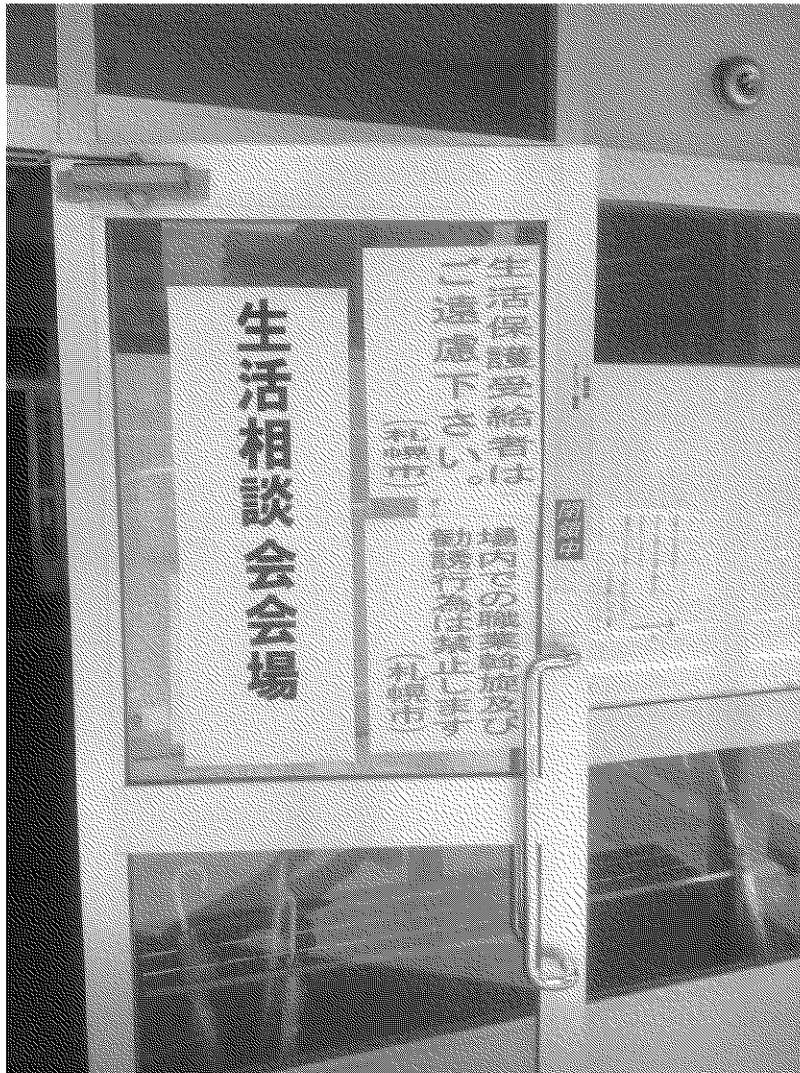 生活保護受給者は
ご遠慮下さい。
(札幌市)
場内での職業斡旋及び
勧誘行為は禁止します
(札幌市)
生活相談会会場